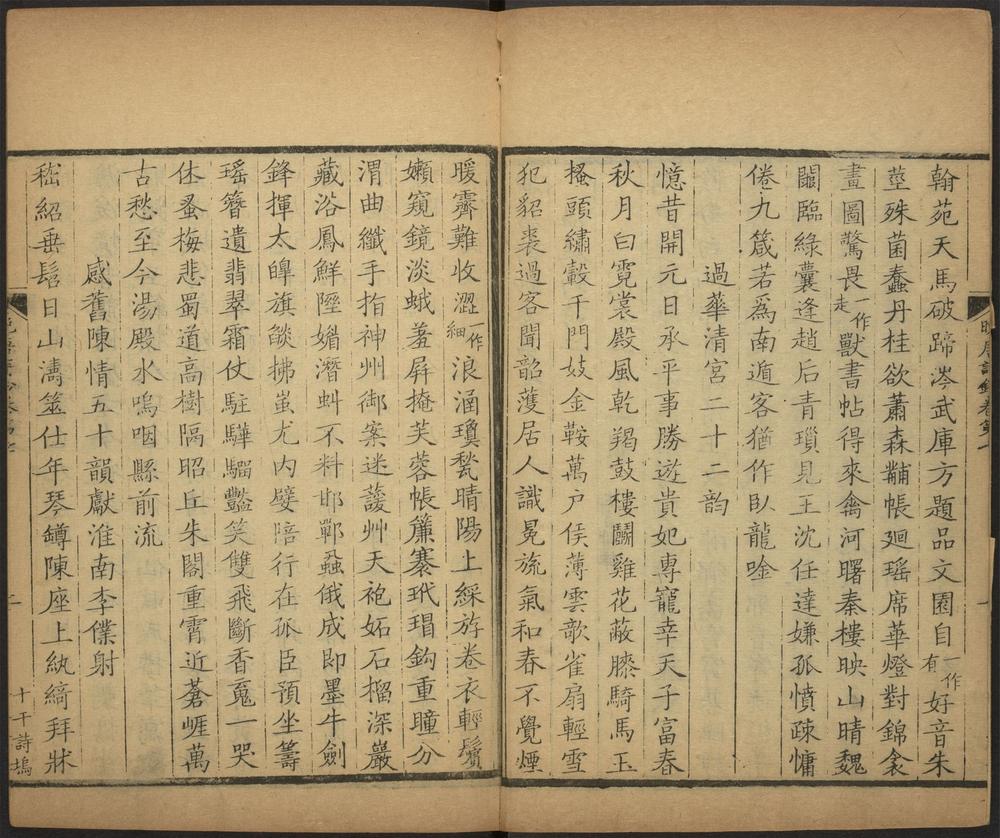 翰苑天馬破蹄涔武庫方題品文園自一作有好音朱
莖殊菌蠢丹桂欲蕭森黼帳廻瑶席華燈對錦衾
畫圖驚畏一作走獸書帖得來禽河曙秦樓映山晴魏
闕臨綠囊逢趙后青瑣見王沈任達嫌孤憤疎慵
倦九箴若爲南遁客猶作臥龍唫
過華清宮二十二韵
憶昔開元日承平事勝遊貴妃專寵幸天子富春
秋月白霓裳殿風乾羯鼓樓鬭雞花蔽膝騎馬玉
搔頭繡轂千門妓金鞍萬户侯薄雲欹雀扇輕雪
犯貂裘過客聞韶濩居人識冕旒氣和春不覺煙
暖霽難收澀一作細浪涵瓊甃晴陽上綵斿卷衣輕鬢
嬾窺鏡淡蛾羞屏掩芙蓉帳簾褰玳瑁鈎重瞳分
渭曲纖手指神州御案迷萲艸天袍妬石榴深巖
藏浴鳳鮮隰媚潛虯不料邯鄲蝨俄成即墨牛劍
鋒揮太皥旗燄拂蚩尤内嬖陪行在孤臣預坐籌
瑶簪遺翡翠霜仗駐驊騮豔笑雙飛斷香䰟一哭
休蚤梅悲蜀道高樹隔昭丘朱閣重霄近蒼崕萬
古愁至今湯殿水嗚咽縣前流
感舊陳情五十韻獻淮南李僕射
嵇紹垂髫日山濤筮仕年琴罇陳座上紈綺拜牀
一
十干詩塢